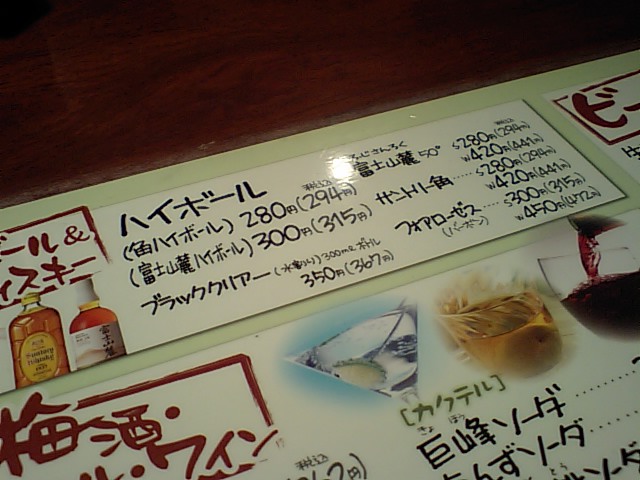 ハイボール
(角ハイボール) 280円(294円)
(富士山麓ハイボール) 300円(315円)
ブラッククリアー(水割り) 300mlボトル
350円(367円)
富士山麓50° S280円(294円)
W420円(441円)
サントリー角 …… S280円(294円)
W420円(441円)
フォアローゼス …… S300円(315円)
(バーボン) W450円(472円)
ール&
ィスキー
ビー
梅酒・
ル・ワイン
[カクテル]
きょほう
巨峰ソーダ
んずソーダ